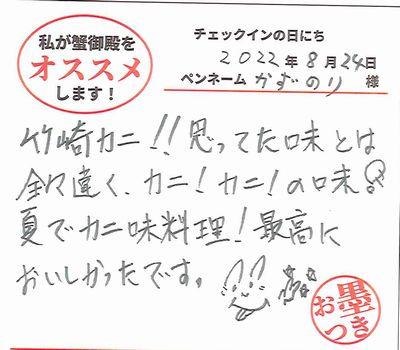 私が蟹御殿を
オススメ
します！
チェックインの日にち
2022年8月24日
ペンネーム かずのり 様
竹崎カニ!!思ってた味とは
全々違く、カニ！カニ！の味!
夏でカニ味料理！最高に
おいしかったです。
お墨つき